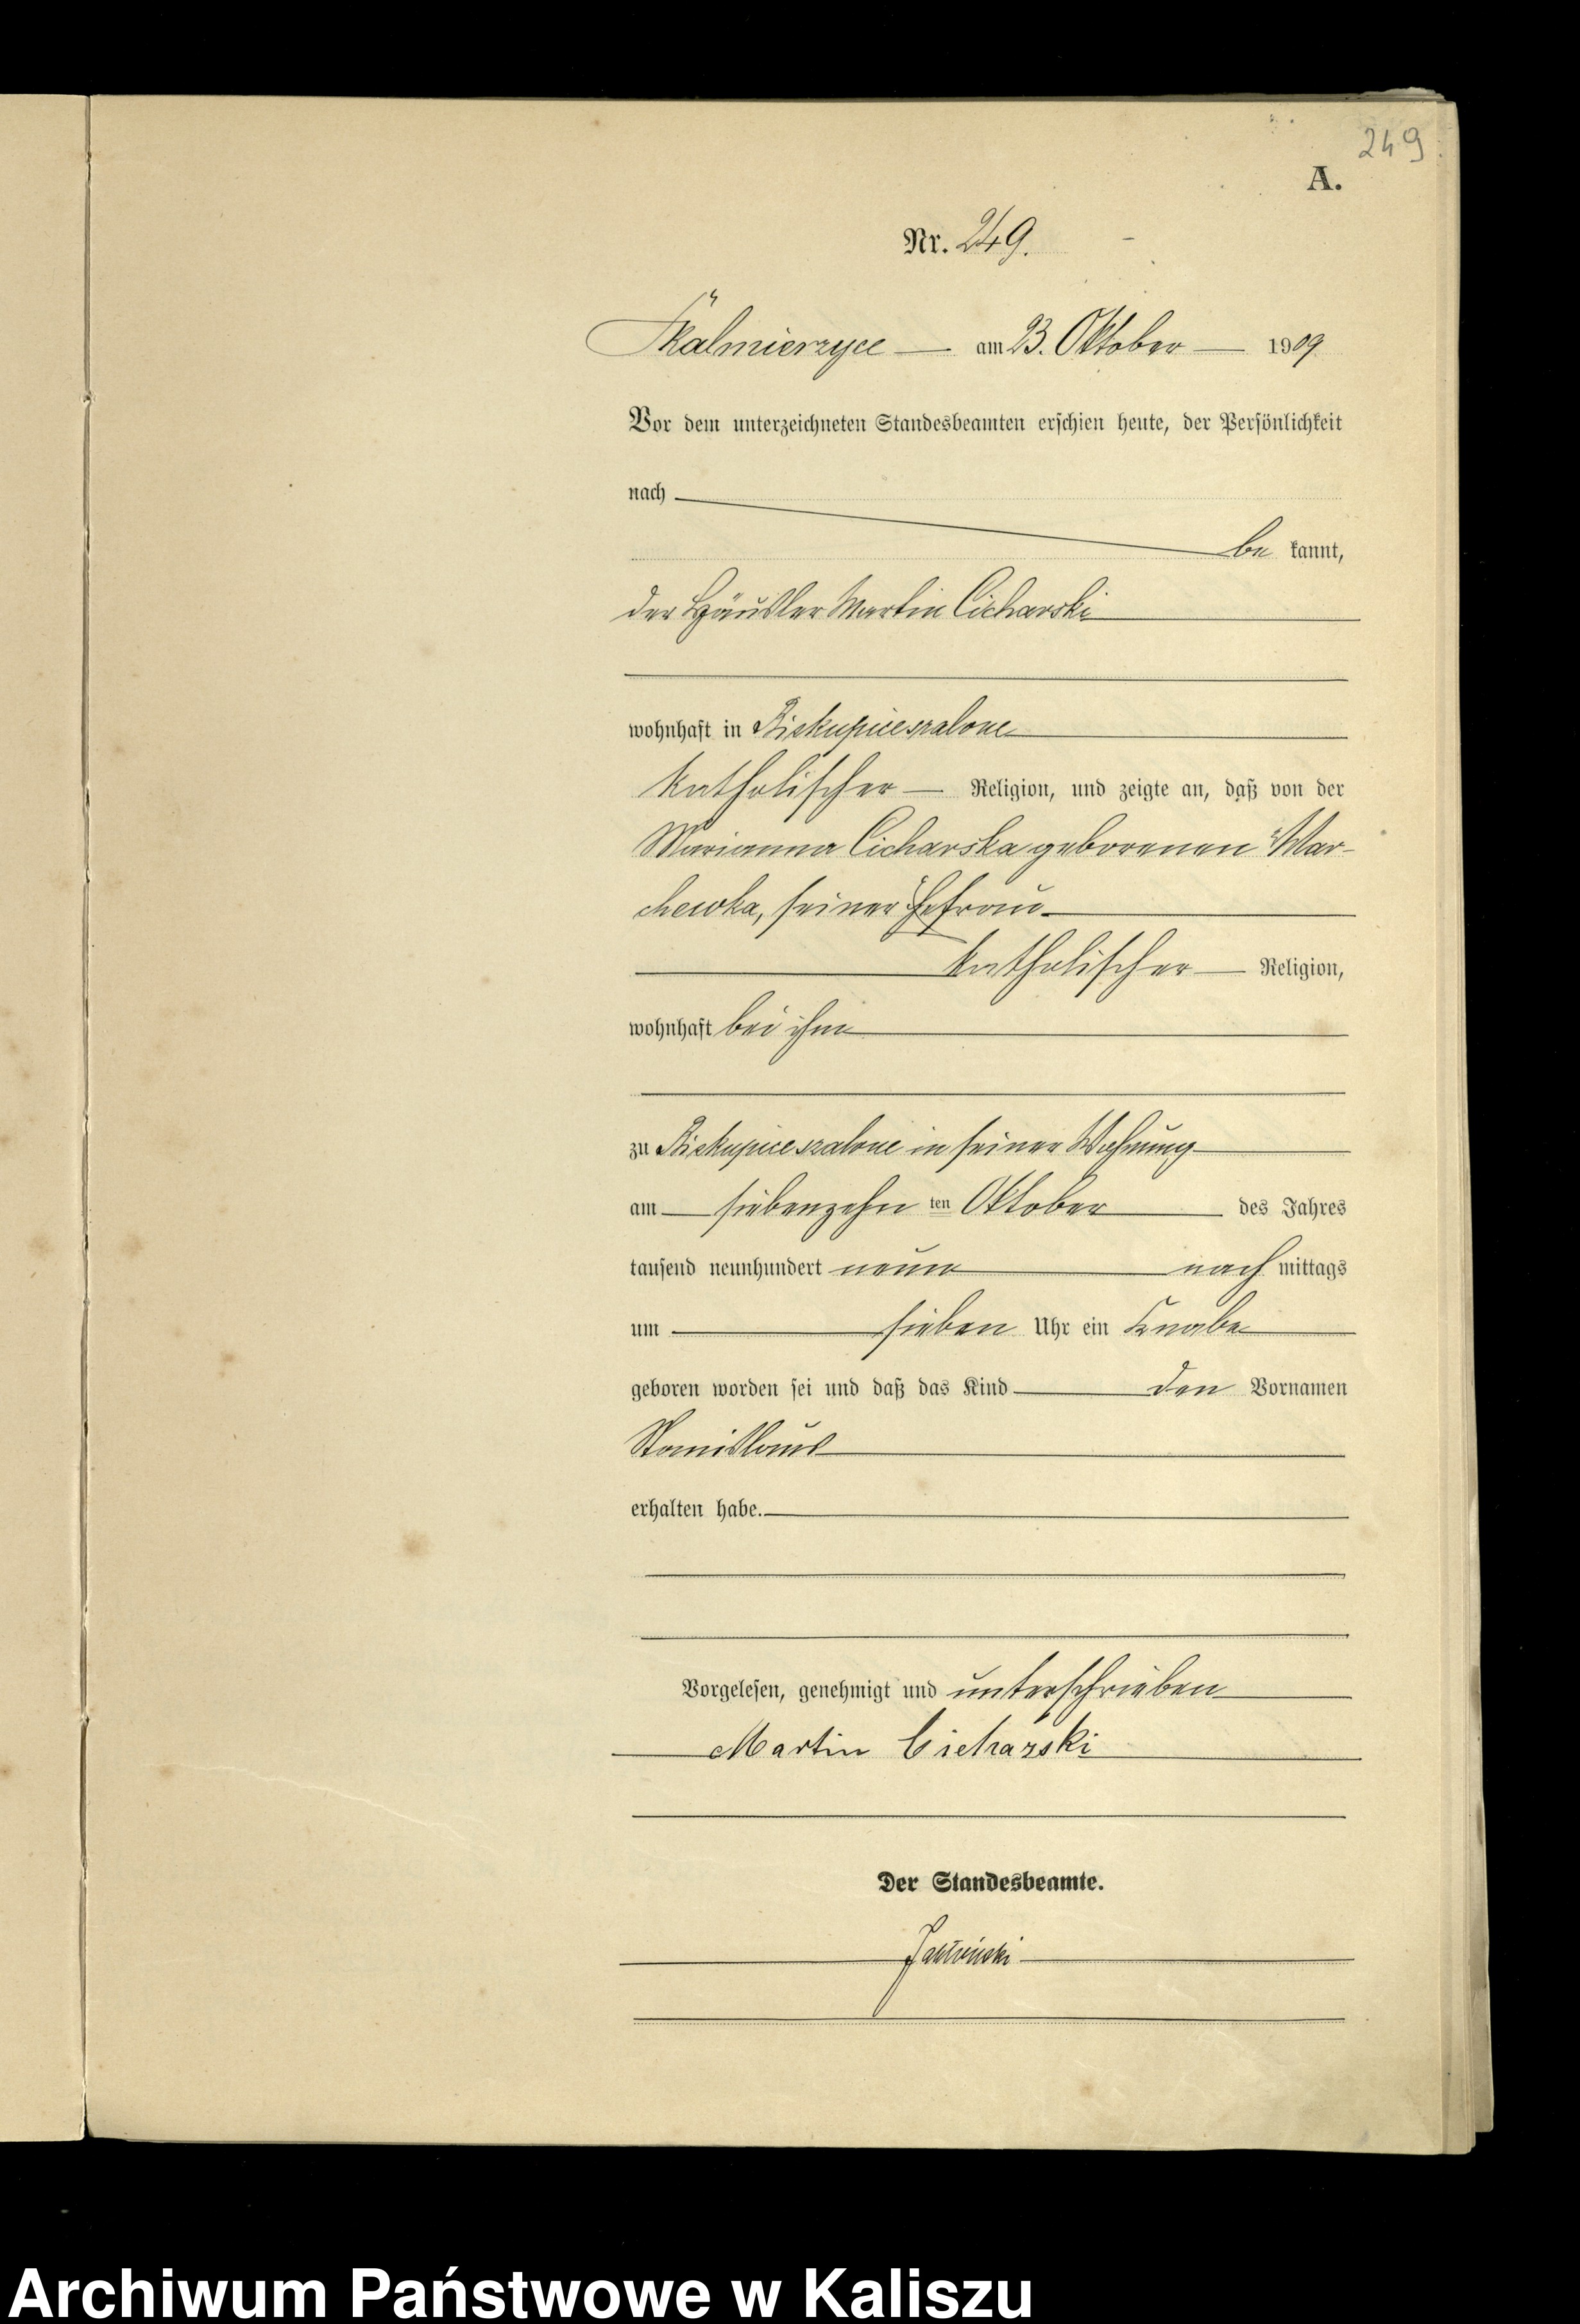 249
A.
Nr. 249.
Skalmierzyce am 23. Oktober 1909
Vor dem unterzeichneten Standesbeamten erschien heute, der Persönlichkeit
nach
be kannt,
der Häusler Martin Cicharski
wohnhaft in Biskupice szalone
katholischer Religion, und zeigte an, daß von der
Marianna Cicharska geborenen Mar-
chewka, seiner Ehefrau
katholischer Religion,
wohnhaft bei ihm
zu Biskupice szalone in seiner Wohnung
am siebenzehn ten Oktober des Jahres
tausend neunhundert neun nach mittags
um sieben Uhr ein Knabe
geboren worden sei und daß das Kind den Vornamen
Stanislaus
erhalten habe.
Vorgelesen, genehmigt und unterschrieben
Martin Cicharski
Der Standesbeamte.
Archiwum Państwowe w Kaliszu